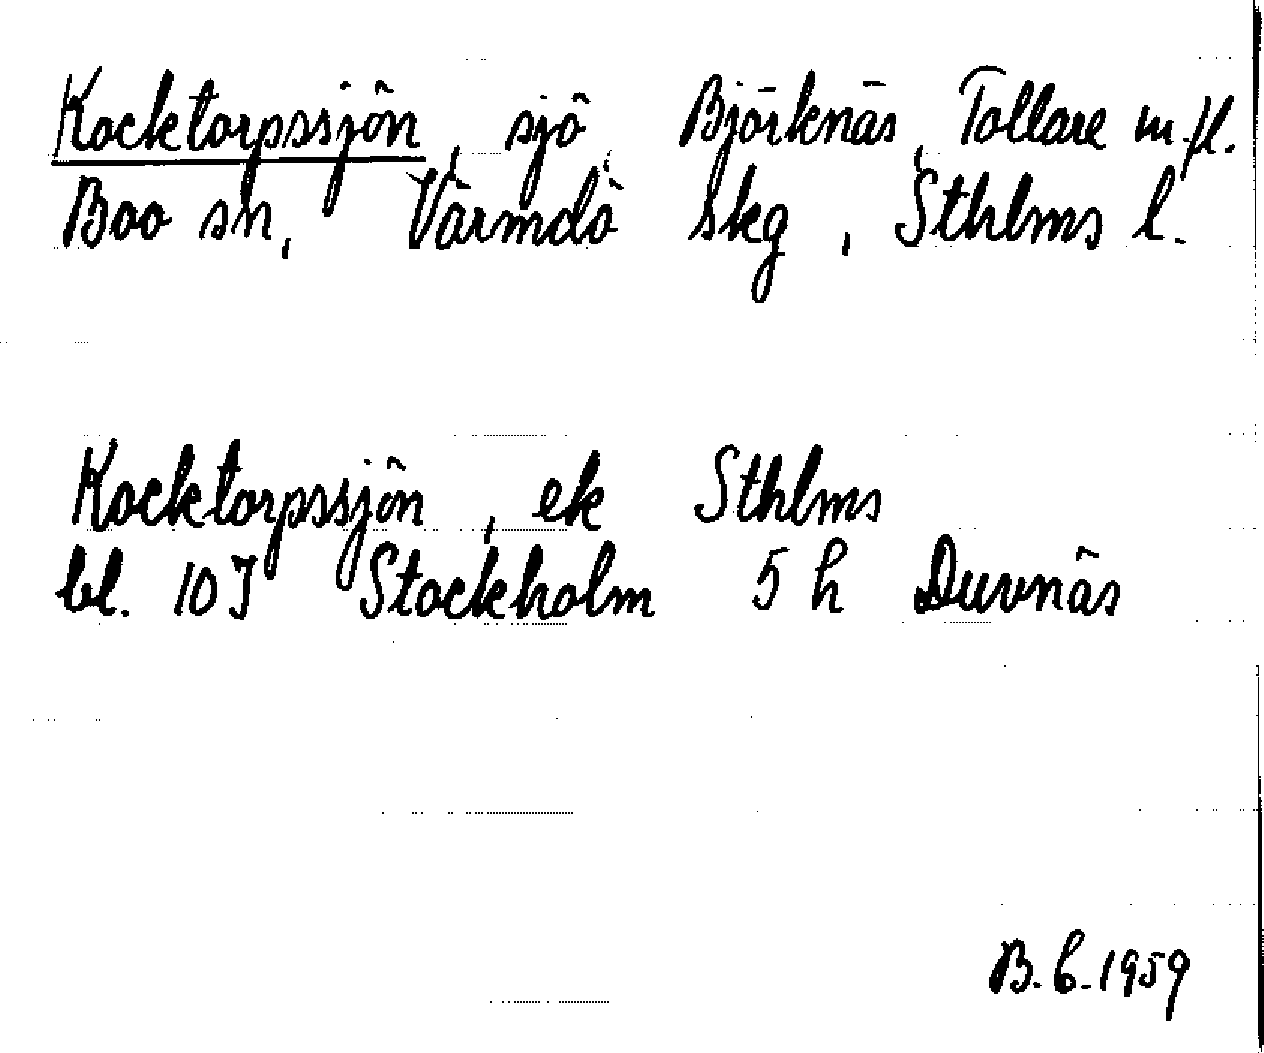 Kocktorpssjön, sjö, Björknäs, Tollare m.fl.
Boo sn, Värmdö skg, Sthlms l.
Kocktorpssjön, ek Sthlms
bl. 10J Stockholm 5 h Duvnäs
B.6.1959